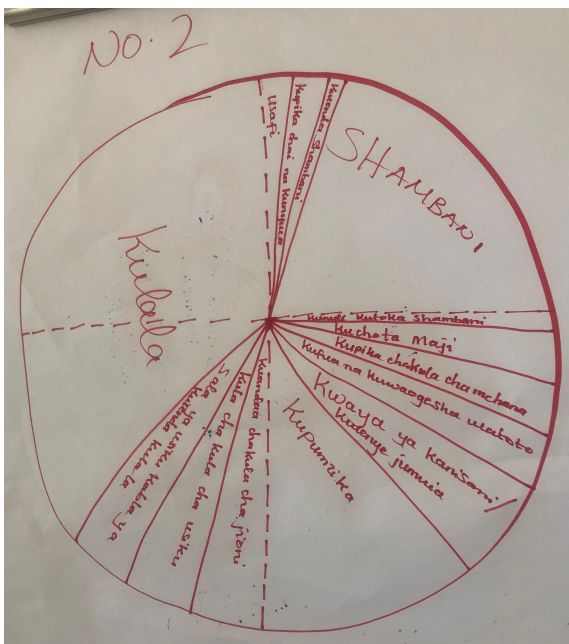 No. 2
Usafi
Kupika chai na kunywa
Kwenda shambani
SHAMBANI
Kutoka shambani
Kuchota maji
Kupika chakula chamchana
Kufua na kuwaogesha watoto
Kwaya ya kanisani/
jumuia
Kupumzika
Kuandaa chakula cha jioni
Kula cha kula cha usku
Sala ya usku kabla ya
kwenda kulala
Kulala